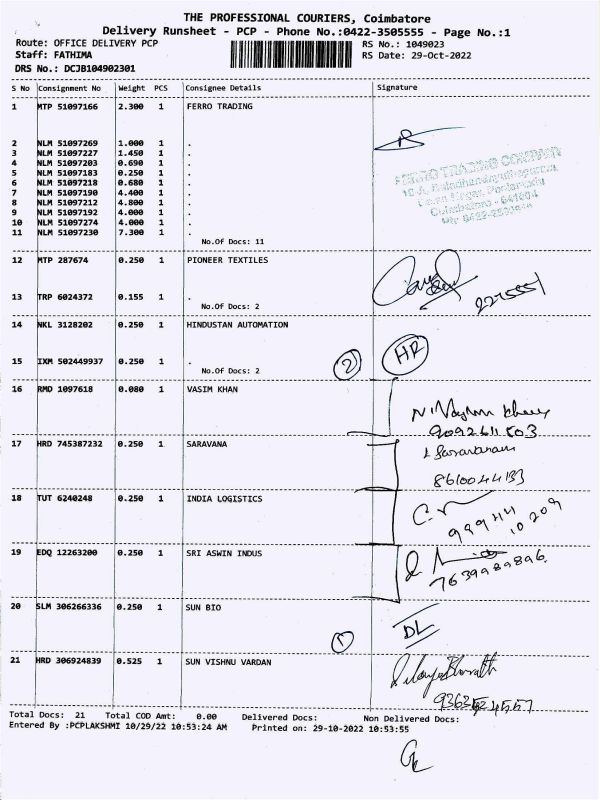 THE PROFESSIONAL COURIERS, Coimbatore
Delivery Runsheet - PCP - Phone No.:0422-3505555 - Page No.:1
Route: OFFICE DELIVERY PCP
RS No.: 1049023
Staff: FATHIMA
RS Date: 29-Oct-2022
DRS No.: DCJB104902301
S No Consignment No Weight PCS Consignee Details Signature
1 MTP 51097166 2.300 1 FERRO TRADING
2 NLM 51097269 1.000 1 .
3 NLM 51097227 1.450 1 .
4 NLM 51097203 0.690 1 .
5 NLM 51097183 0.250 1 .
6 NLM 51097218 0.680 1 .
7 NLM 51097190 4.400 1 .
8 NLM 51097212 4.800 1 .
9 NLM 51097192 4.000 1 .
10 NLM 51097274 4.000 1 .
11 NLM 51097230 7.300 1 .
No.Of Docs: 11
FERRO TRADING COMPANY
12 MTP 287674 0.250 1 PIONEER TEXTILES
13 TRP 6024372 0.155 1 .
No.Of Docs: 2
14 NKL 3128202 0.250 1 HINDUSTAN AUTOMATION
15 IXM 502449937 0.250 1 .
No.Of Docs: 2
2 HR
16 RMD 1097618 0.080 1 VASIM KHAN
17 HRD 745387232 0.250 1 SARAVANA
8610044133
18 TUT 6240248 0.250 1 INDIA LOGISTICS
99944
10209
19 EDQ 12263200 0.250 1 SRI ASWIN INDUS
7639989896
20 SLM 306266336 0.250 1 SUN BIO
DL
21 HRD 306924839 0.525 1 SUN VISHNU VARDAN
Total Docs: 21 Total COD Amt: 0.00 Delivered Docs: Non Delivered Docs:
Entered By :PCPLAKSHMI 10/29/22 10:53:24 AM Printed on: 29-10-2022 10:53:55